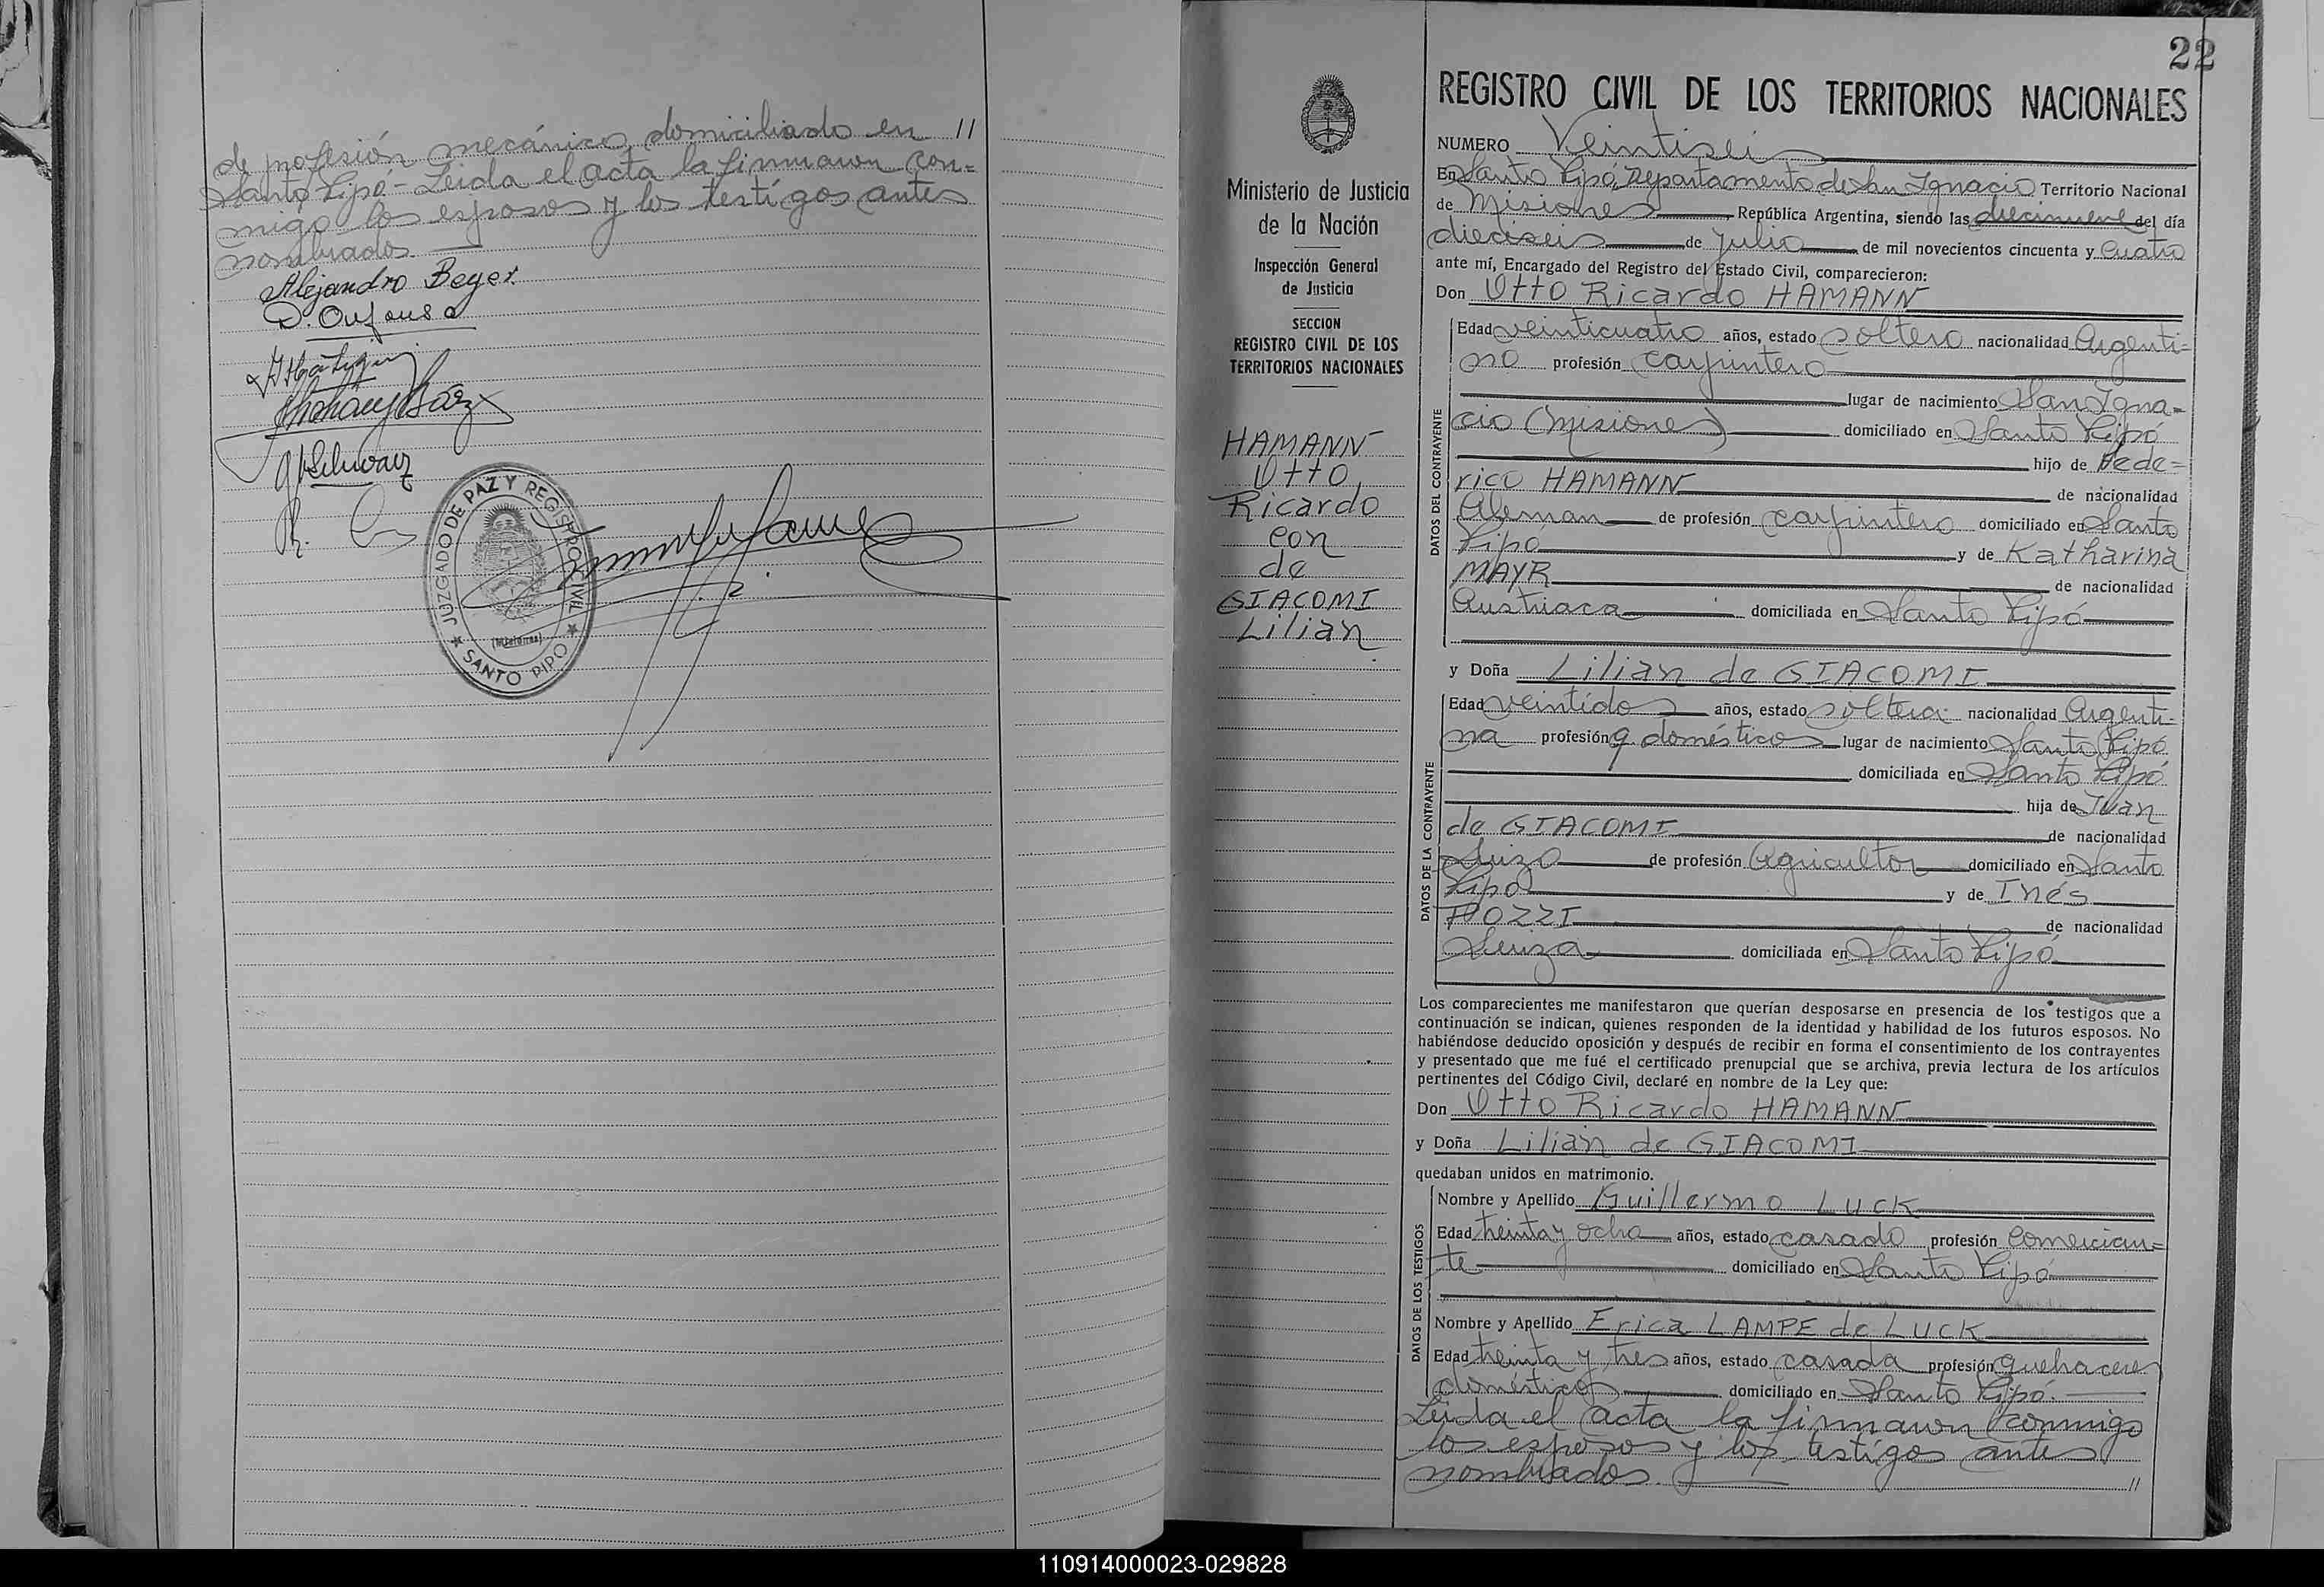 de profesión mecánico, domiciliado en //
Santo Pipó - Leida el acta la firmaron con=
migo los esposos y los testigos antes
nombrados.
Alejandro Beyer.
JUZGADO DE PAZ Y REGISTRO CIVIL
(Misiones)
SANTO PIPO
22
REGISTRO CIVIL DE LOS TERRITORIOS NACIONALES
Ministerio de Justicia
de la Nación
Inspección General
de Justicia
SECCION
REGISTRO CIVIL DE LOS
TERRITORIOS NACIONALES
HAMANN
Otto
Ricardo
con
de
GIACOMI
Lilian
NUMERO Veintiseis
En Santo Pipó, Departamento de San Ignacio Territorio Nacional
de Misiones, República Argentina, siendo las diecinueve del día
dieciseis de Julio de mil novecientos cincuenta y cuatro
ante mí, Encargado del Registro del Estado Civil, comparecieron:
Don Otto Ricardo HAMANN
DATOS DEL CONTRAYENTE
Edad veinticuatro años, estado soltero nacionalidad Argenti=
no profesión carpintero
lugar de nacimiento San Igna=
cio (Misiones) domiciliado en Santo Pipó
hijo de Fede=
rico HAMANN de nacionalidad
Aleman de profesión carpintero domiciliado en Santo
Pipó y de Katharina
MAYR de nacionalidad
Austriaca domiciliada en Santo Pipó
y Doña Lilian de GIACOMI
DATOS DE LA CONTRAYENTE
Edad veintidos años, estado soltera nacionalidad Argenti=
na profesión q. domésticos lugar de nacimiento Santo Pipó
domiciliada en Santo Pipó
hija de Juan
de GIACOMI de nacionalidad
Suizo de profesión Agricultor domiciliado en Santo
Pipó y de Inés
POZZI de nacionalidad
Suiza domiciliada en Santo Pipó
Los comparecientes me manifestaron que querían desposarse en presencia de los testigos que a
continuación se indican, quienes responden de la identidad y habilidad de los futuros esposos. No
habiéndose deducido oposición y después de recibir en forma el consentimiento de los contrayentes
y presentado que me fué el certificado prenupcial que se archiva, previa lectura de los artículos
pertinentes del Código Civil, declaré en nombre de la Ley que:
Don Otto Ricardo HAMANN
y Doña Lilian de GIACOMI
quedaban unidos en matrimonio.
DATOS DE LOS TESTIGOS
Nombre y Apellido Guillermo LUCK
Edad treinta y ocho años, estado casado profesión Comercian=
te domiciliado en Santo Pipó
Nombre y Apellido Erica LAMPE de LUCK
Edad treinta y tres años, estado casada profesión quehaceres
domésticos domiciliado en Santo Pipó.
Leida el acta la firmaron conmigo
los esposos y los testigos antes
nombrados. //
110914000023-029828